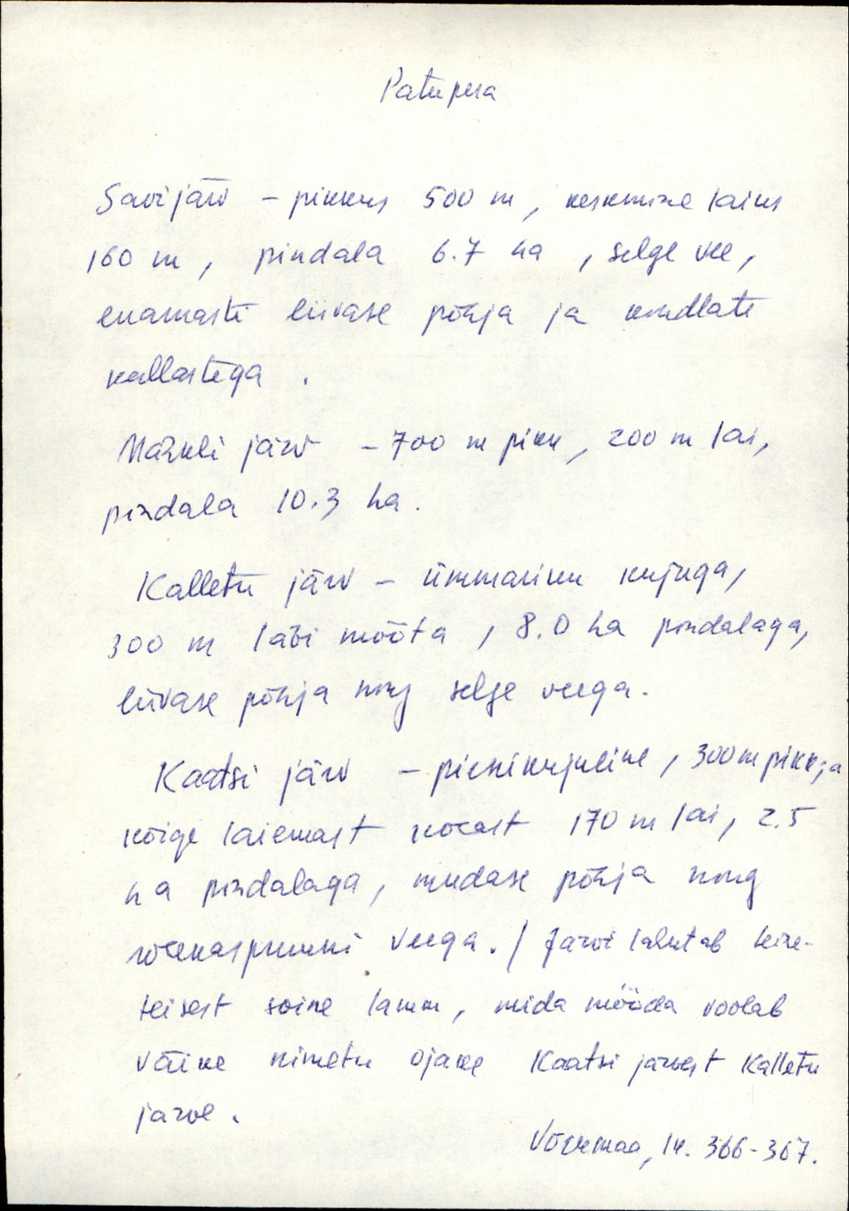 Patupera
Savijärv - pikkus 500 m, keskmine laius
160 m, pindala 6.7 ha, selge vee,
enamasti liivase põhja ja kindlate
kallastega.
järv - 700 m pikk, 200 m lai,
pindala 10.3 ha.
Kalletu järv - ümmariku kujuga,
300 m läbi mõõta, 8.0 ha pindalaga,
liivase põhja ning selge veega.
Kaatsi järv - pirnikujuline, 300 m pikk ja
kõige laiemast kohast 170 m lai, 2.5
ha pindalaga, mudase põhja ning
rohekaspruuni veega. / Järvi lahutab teine-
teisest soine lamm, mida mööda voolab
väike nimetu ojake Kaatsi järvest Kalletu
järve.
Võrumaa, lk. 366-367.